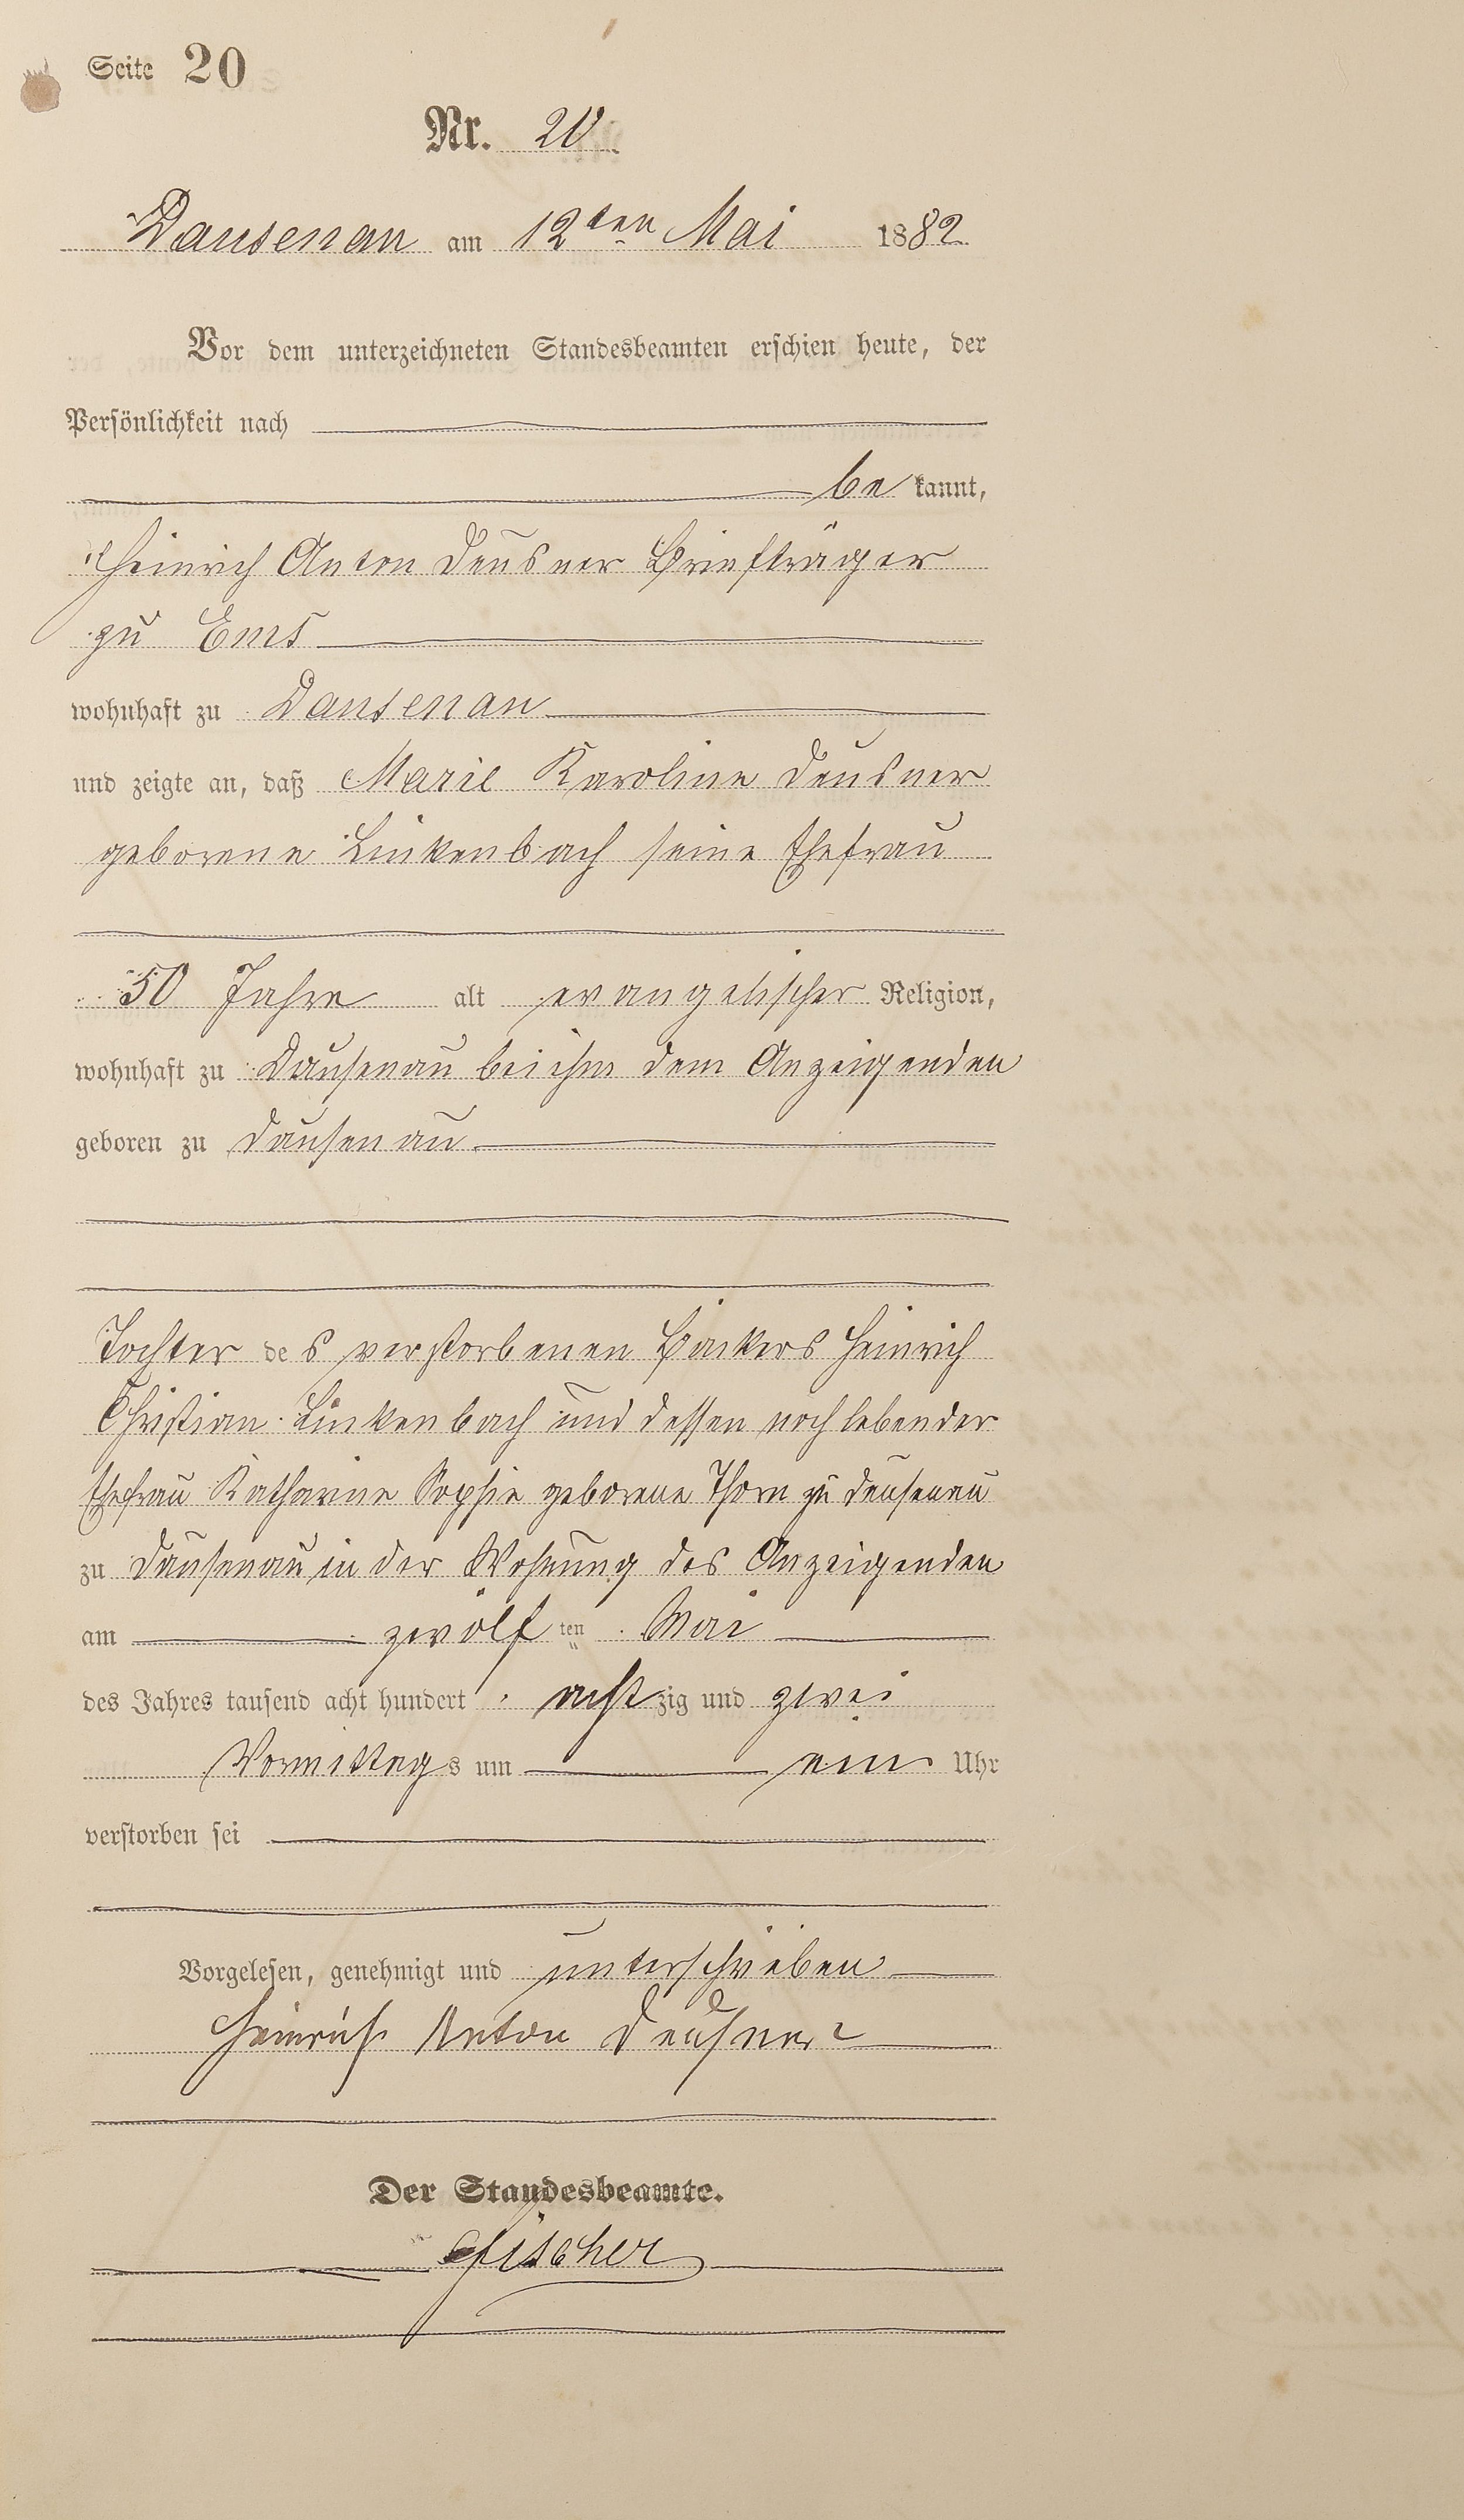 Seite 20
Nr. 20
Dausenau am 12ten Mai 1882
Vor dem unterzeichneten Standesbeamten erschien heute, der
Persönlichkeit nach
be kannt,
Heinrich Anton Deusner Briefträger
zu Ems
wohnhaft zu Dausenau
und zeigte an, daß Marie Karoline Deusner
geborene Linkenbach seine Ehefrau
50 Jahre alt evangelischer Religion,
wohnhaft zu Dausenau bei ihm dem Anzeigenden
geboren zu Dausenau
Tochter des verstorbenen Bäckers Heinrich
Christian Linkenbach und dessen noch lebender
Ehefrau Katharine Sophie geborene Thorn zu Dausenau
zu Dausenau in der Wohnung des Anzeigenden
am zwölf ten Mai
des Jahres tausend acht hundert acht zig und zwei
Vormittags um ein Uhr
verstorben sei
Vorgelesen, genehmigt und unterschrieben
Heinrich Anton Deusner
Der Standesbeamte.
Fischer